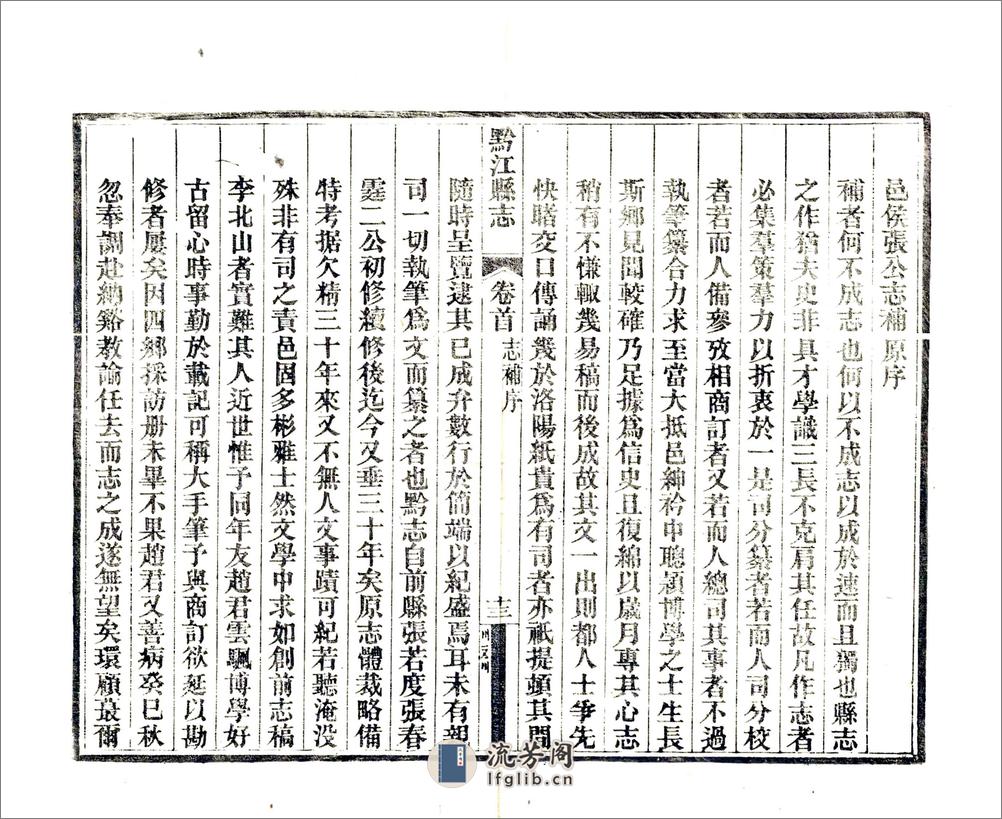 邑侯張公志補原序
補者何不成志也何以不成志以成於速而且獨也縣志
之作猶夫史非具才學識三長不克肩其任故凡作志者
必集羣策羣力以折衷於一是司分纂者若而人司分校
者若而人備參攷相商訂者又若而人總司其事者不過
執筆纂合力求至當大抵邑紳衿中聰穎博學之士生長
斯鄉見聞較確乃足據爲信史且復綿以歲月專其心志
稍有不慊輙幾易稿而後成故其文一出則都人士爭先
快睹交口傳誦幾於洛陽紙貴爲有司者亦祇提頓其間
黔江縣志
卷首
志補序
十三
隨時呈覽逮其已成弁數行於簡端以紀盛焉耳未有親
司一切執筆爲文而纂之者也黔志自前縣張若度張春
霆二公初修續修後迄今又垂三十年矣原志體裁略備
特考据欠精三十年來又不無人文事蹟可紀若聽淹没
殊非有司之責邑固多彬雅士然文學中求如創前志稿
李北山者實難其人近世惟予同年友趙君雲颿博學好
古留心時事勤於載記可稱大手筆予與商訂欲延以勘
修者屢矣因四鄉採訪册未畢不果趙君又善病癸巳秋
忽奉調赴納谿教諭任去而志之成遂無望矣環顧蕞爾
流芳阁
lfglib.cn